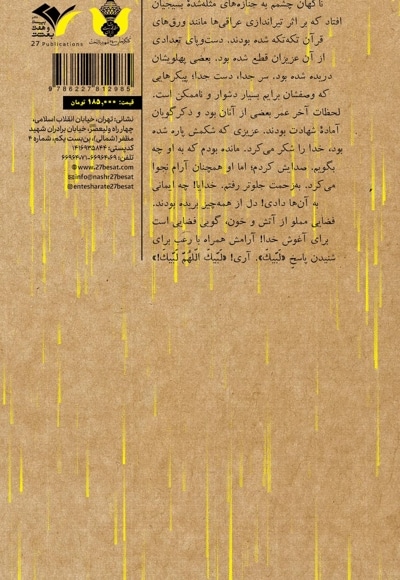 ناگهان چشمم به جنازه‌های مثله‌شدهٔ بسیجیان
افتاد که بر اثر تیراندازی عراقی‌ها مانند ورق‌های
قرآن تکه‌تکه شده بودند. دست‌وپای تعدادی
از آن عزیزان قطع شده بود. بعضی پهلویشان
دریده شده بود. سر جدا، دست جدا؛ پیکرهایی
که وصفشان برایم بسیار دشوار و ناممکن است.
لحظات آخر عمر بعضی از آنان بود و ذکرگویان
آمادهٔ شهادت بودند. عزیزی که شکمش پاره شده
بود، خدا را شکر می‌کرد. مانده بودم که به او چه
بگویم. صدایش کردم؛ اما او همچنان آرام نجوا
می‌کرد. به‌رحمت جلوتر رفتم. خدایا! چه ایمانی
به آن‌ها دادی! دل از همه‌چیز بریده بودند.
فضایی مملو از آتش و خون، گویی فضایی است
برای آغوش خدا! آرامش همراه با رعب برای
شنیدن پاسخ «لبّیک». آری! «لَبَّیکَ اَللّهُمَّ لَبَّیکَ!»
27 Publications
9786227812985
قیمت: ۱۸۵,۰۰۰ تومان
نشانی: تهران، خیابان انقلاب اسلامی،
چهارراه ولیعصر، خیابان برادران شهید
مظفر (شمالی)، بن‌بست یکم، شماره ۴
کدپستی: ۱۴۱۶۹۳۵۸۴۴
تلفن: ۶۶۹۶۴۰۶۹-۶۶۹۶۴۰۷۱
www.27besat.com
info@nashr27besat
@entesharate27besat